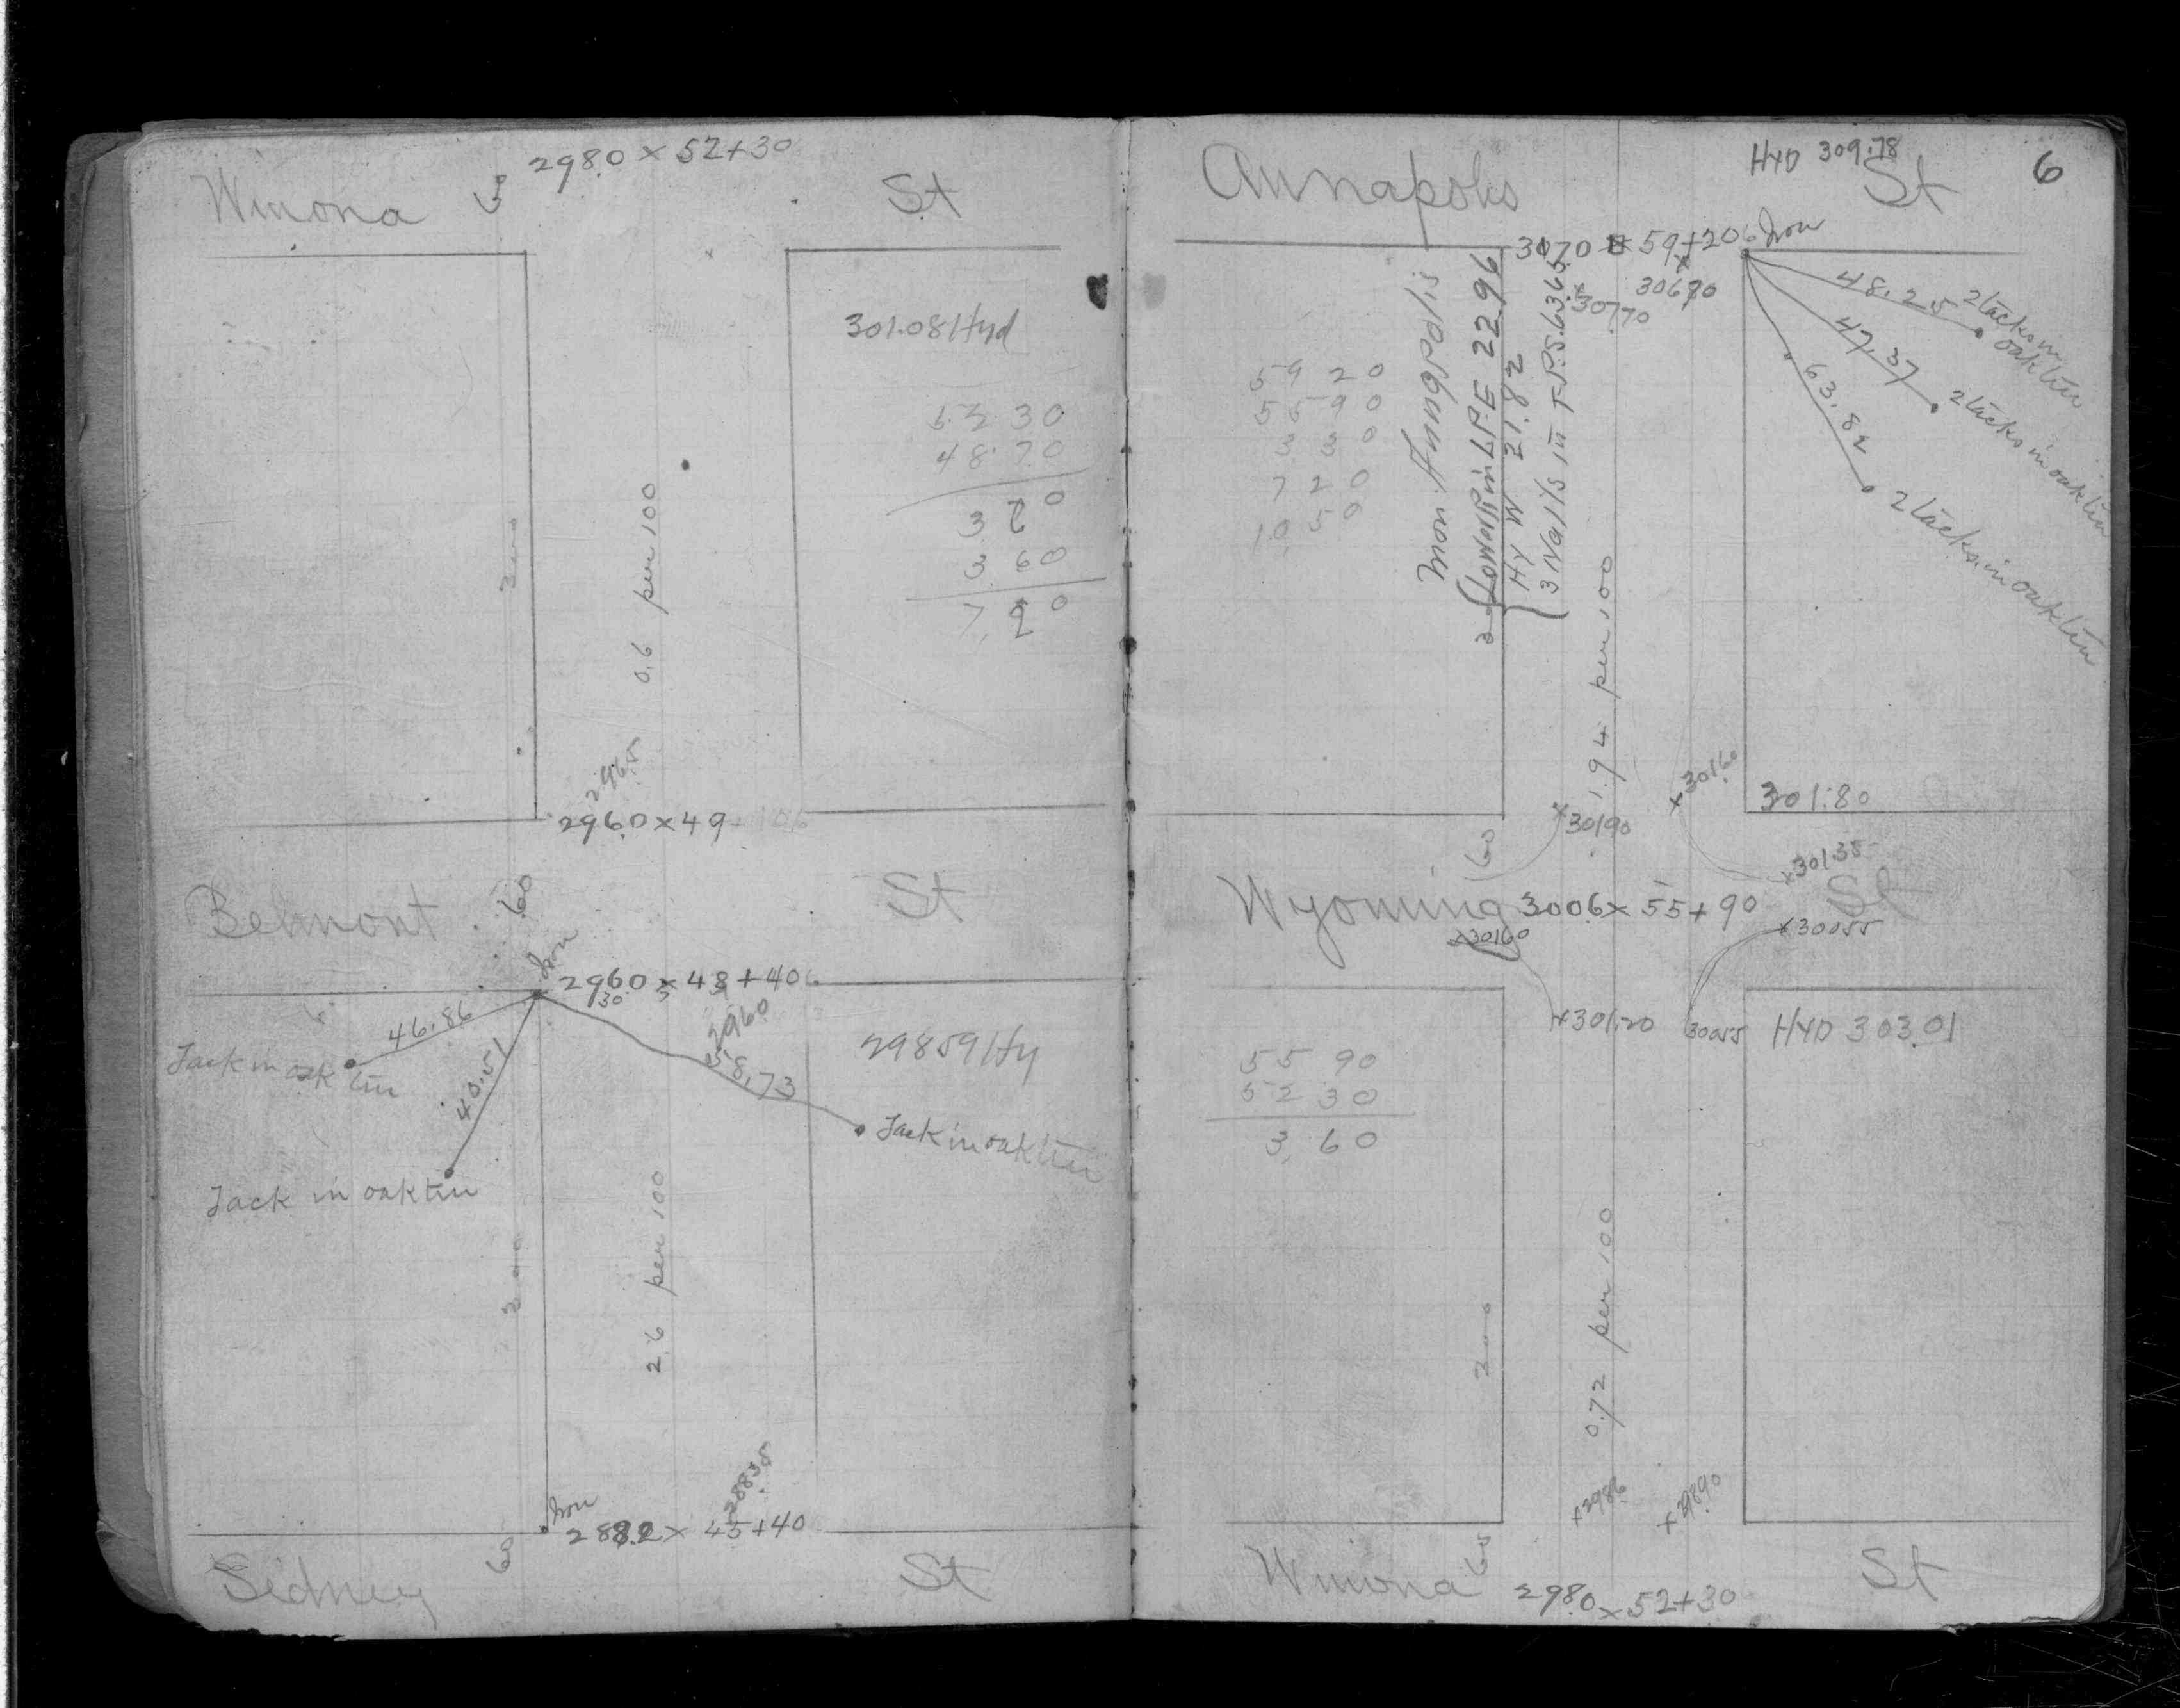 298.0 x 52+30
Winona St
301.08 Hyd
52 30
48.70
3 60
3 60
7. 20
300
0.6 per 100
2965
296.0 x 49
Belmont St
60
Iron
2960 x 48+40
30
2960
46.86
Tack in oak tree
40.51
Tack in oak tree
58.73
Tack in oak tree
29859 Hy
300
2.6 per 100
28835
Iron
288.2 x 45+40
60
Sidney St
6
HYD 309.78
Annapolis St
3070 x 59+20
Iron
30670
30770
48.25
2 tacks in oak tree
47.37
2 tacks in oak tree
63.82
2 tacks in oak tree
59 20
55 90
3 30
7 20
10 50
Mon. Annapolis
LPE 22.96
HY W 21.82
1.94 per 100
+30160
301.80
30190
60
+30135
Wyoming 3006 x 55+90 St
+30160
+30055
+301.20
30055
HYD 303.01
55 90
52 30
3. 60
300
0.72 per 100
+2986
+29890
60
Winona St
2980 x 52+30